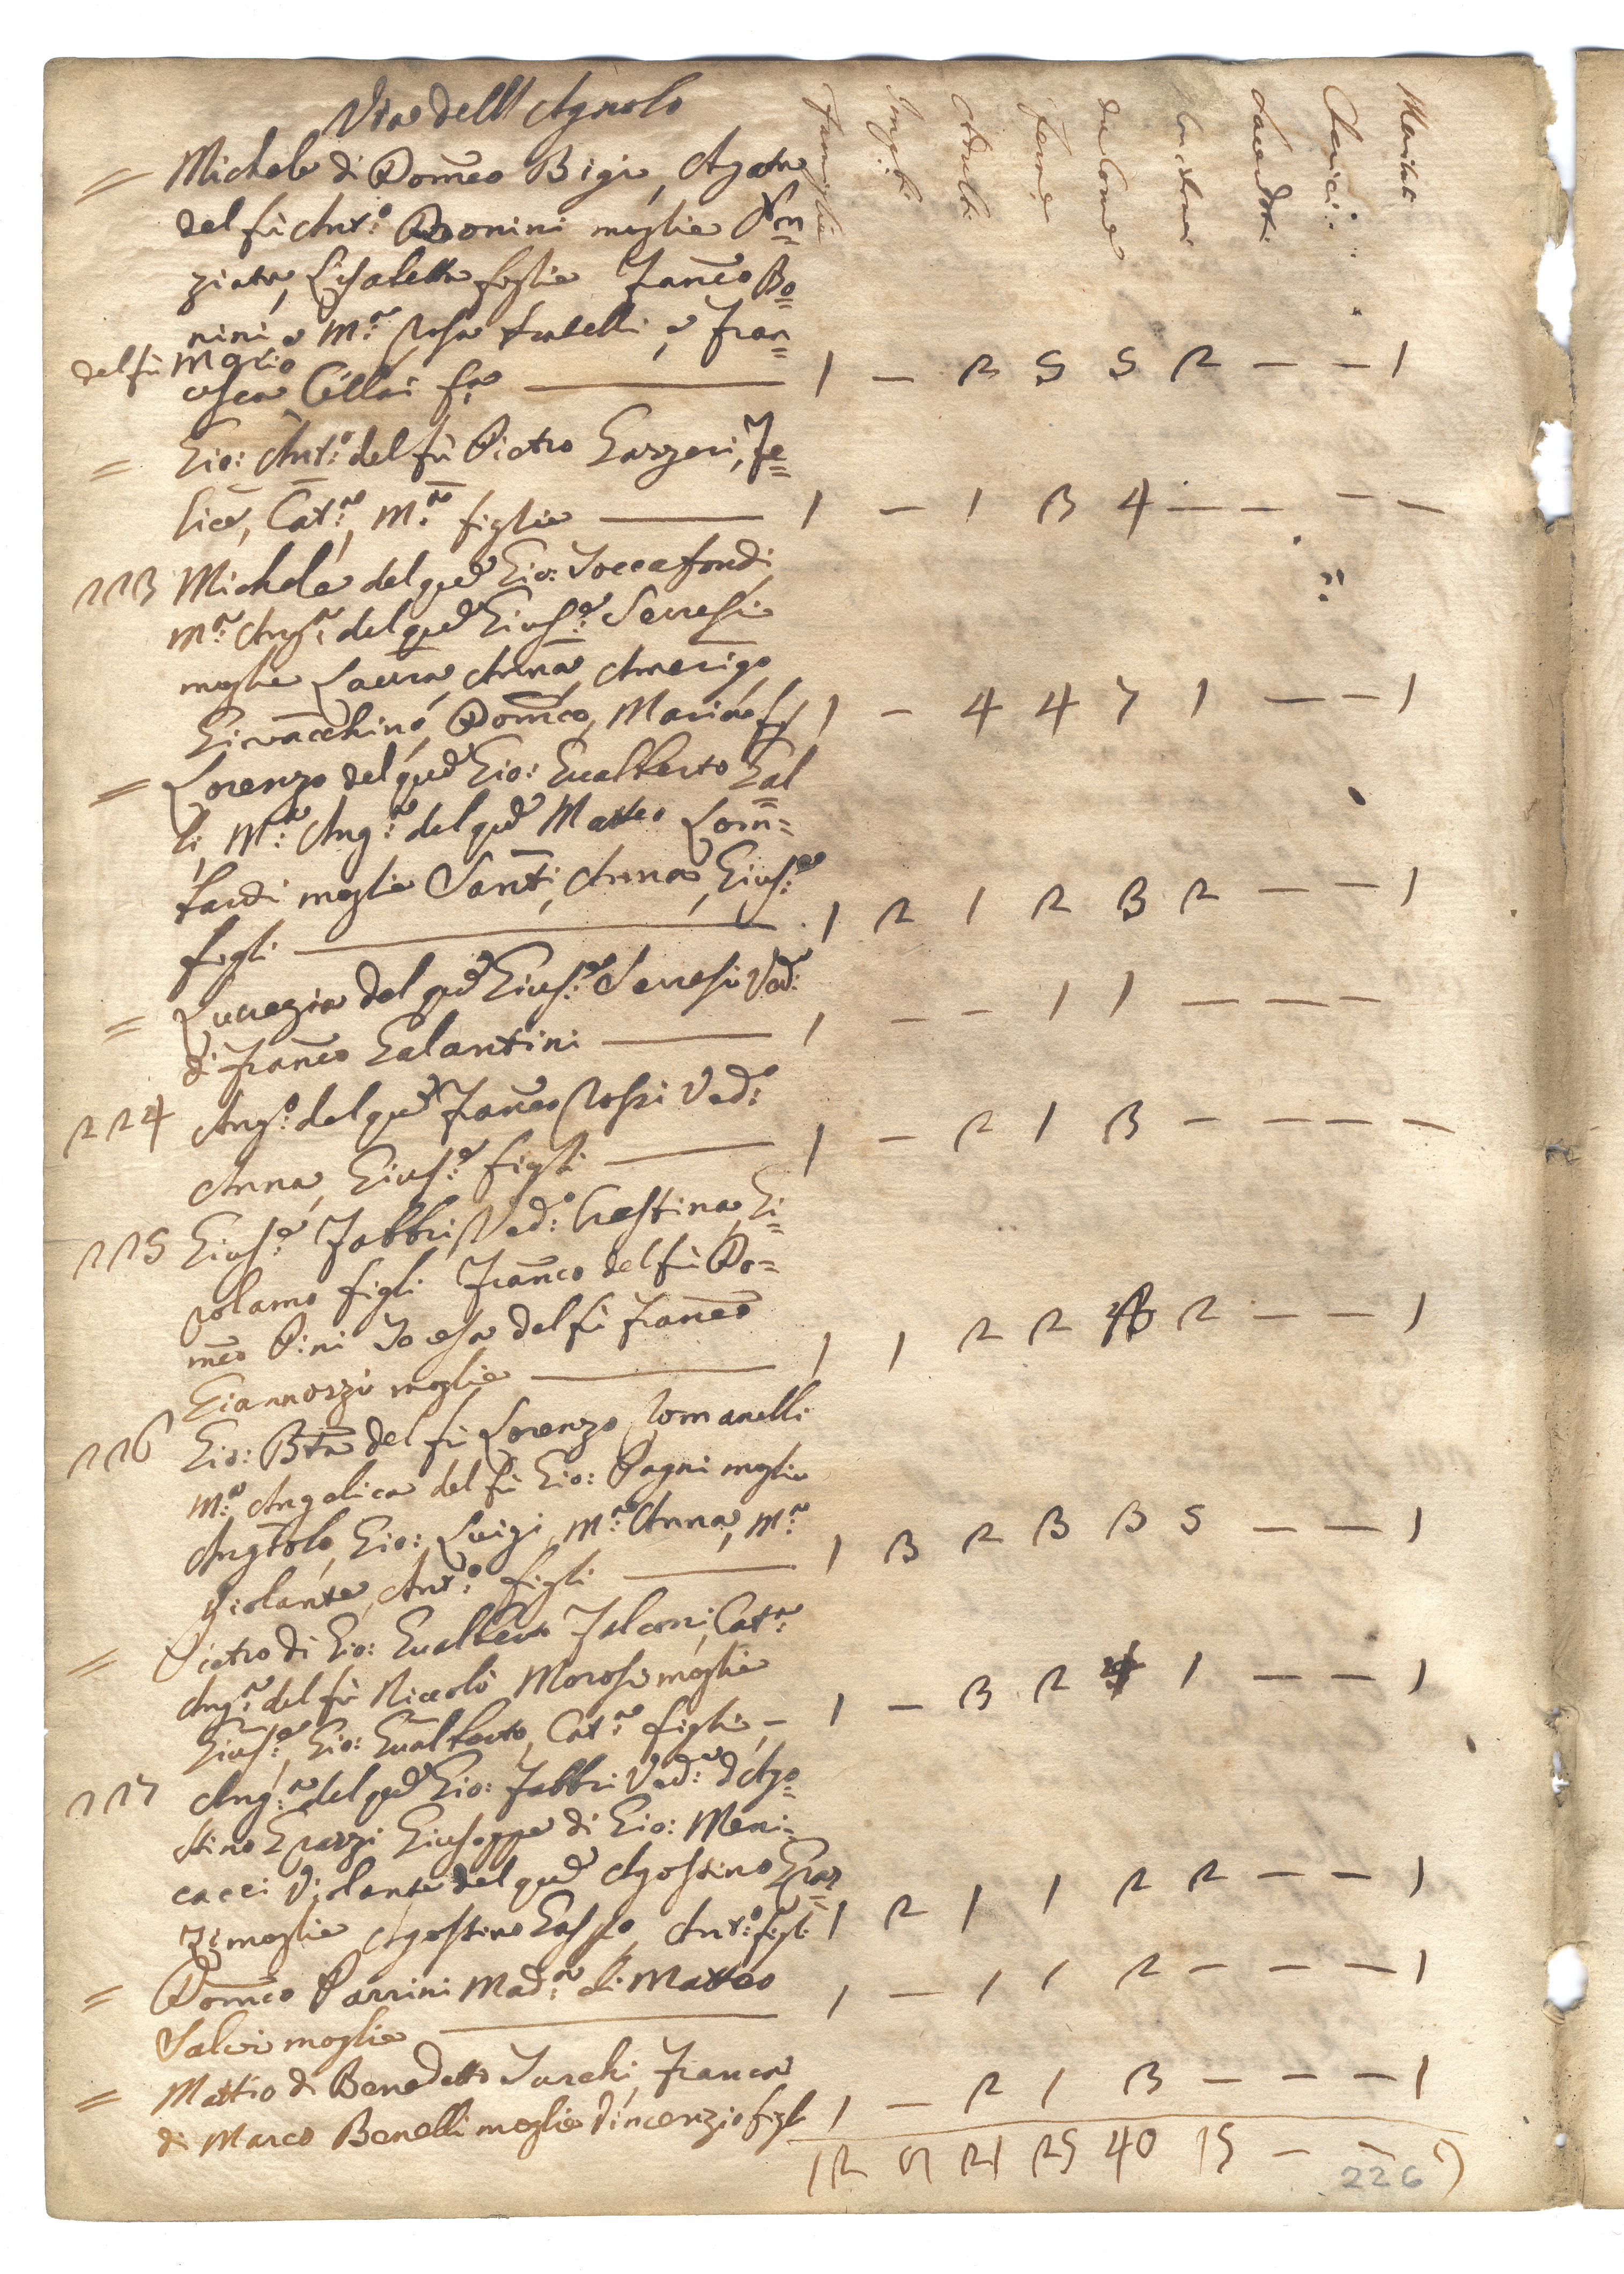 Via dell Agnolo
Famiglie Impub: Adulti Feme da Come Sacerdoti Cherici: Maritati
= Michele di Dom̃co Bigi, Agata
del fù Ant:º Bonini moglie
ziata, Lisabetta figlie Franc̃o Bo=
nini e M:ª Rosa fratelli, e Fran=
del fù Mario
cesca Cellai 1 — 2 5 5 2 — — 1
= Gio: Ant:º del fù Pietro Gazzeri, Fe=
lice, Cat:ª, M:ª figlie 1 — 1 3 4 — — — —
223 Michele del qud Gio: Toccafondi
M:ª Ang:ª del qud Gius:e Serresi
moglie Laura, Anna, Amerigo
Giovacchino, Dom̃co, Maria 1 — 4 4 7 1 — — 1
= Lorenzo del qud Gio: Gualberto Gal
li, M:ª Ang:ª del qud Matteo Lom=
bardi moglie Santi, Anna, Gius:e
figli 1 2 1 2 3 2 — — 1
= Lucrezia del qud Gius:e Serresi Ved:ª
di Franc̃o Galantini 1 — — 1 1 — — —
224 Ang:º del qud Franc̃o Rossi Ved:º
Anna, Gius:e figli 1 — 2 1 3 — — — —
225 Gius:e Fabbri Ved:º Crestina, Gi=
rolamo figli Franc̃o del fù Do=
mc̃o Pini Teresa del fù Franc̃o
Giannozzi moglie 1 1 2 2 3 2 — — 1
226 Gio: Btã del fù Lorenzo Romanelli
M:ª Angelica del fù Gio: Pagni moglie
Angiolo, Gio:, Luigi, M:ª Anna, M:ª
Violante, Ant:º figli 1 3 2 3 3 5 — — 1
= Pietro di Gio: Gualberto Falconi, Cat:ª
Ang:ª del fù Niccolò Morosi moglie
Gius:e, Gio: Gualberto, Cat:ª figli, — 1 — 3 2 4 1 — — 1
227 Ang:ª del qud Gio: Fabbri Ved:ª d'Ago=
stino Grazzi Giuseppe di Gio: Meni=
cacci Violante del qud Agostino Graz
zi moglie Agostino Gaspo, Ant:º figli 1 2 1 1 2 2 — — 1
= Dom̃co Parrini Mad:ª di Matteo
Salvi moglie 1 — 1 1 2 — — — 1
= Mattio di Benedetto Turchi, Franca
di Marco Benelli moglie Vincenzio figli 1 — 2 1 3 — — — 1
12 21 25 40 15 — — 9
226